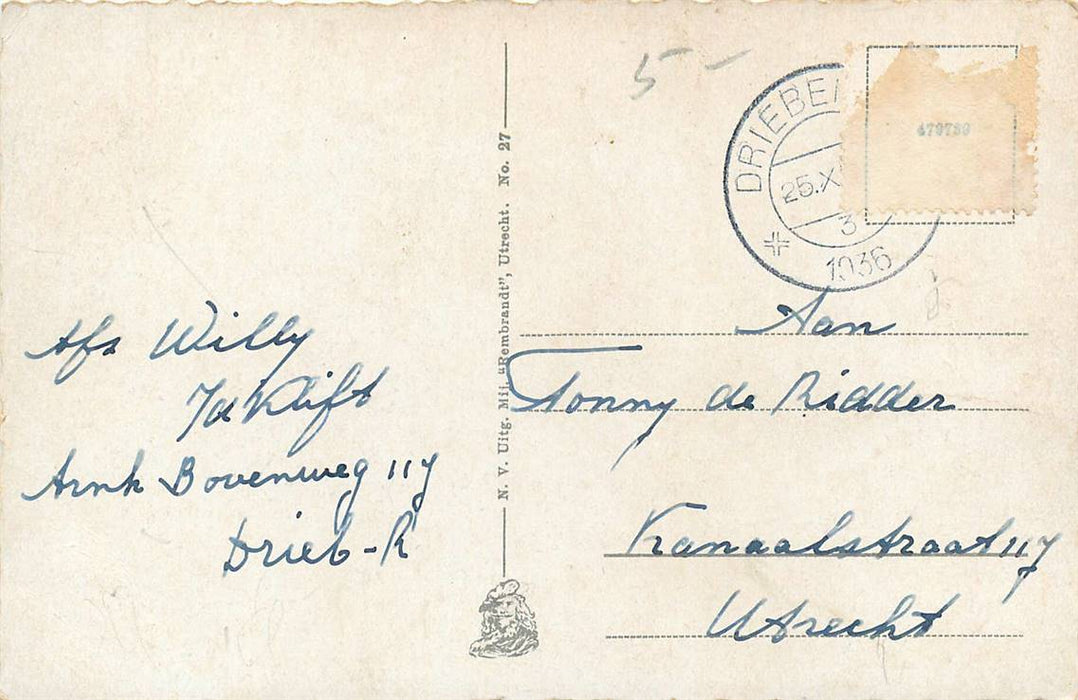 Afs Willy
Klift
Arnh Bovenweg 117
Drieb-R
N. V. Uitg. Mij. "Rembrandt", Utrecht. No. 27
5-
DRIEBE
25.X
3
1936
479789
Aan
Tonny de Ridder
Kanaalstraat 117
Utrecht